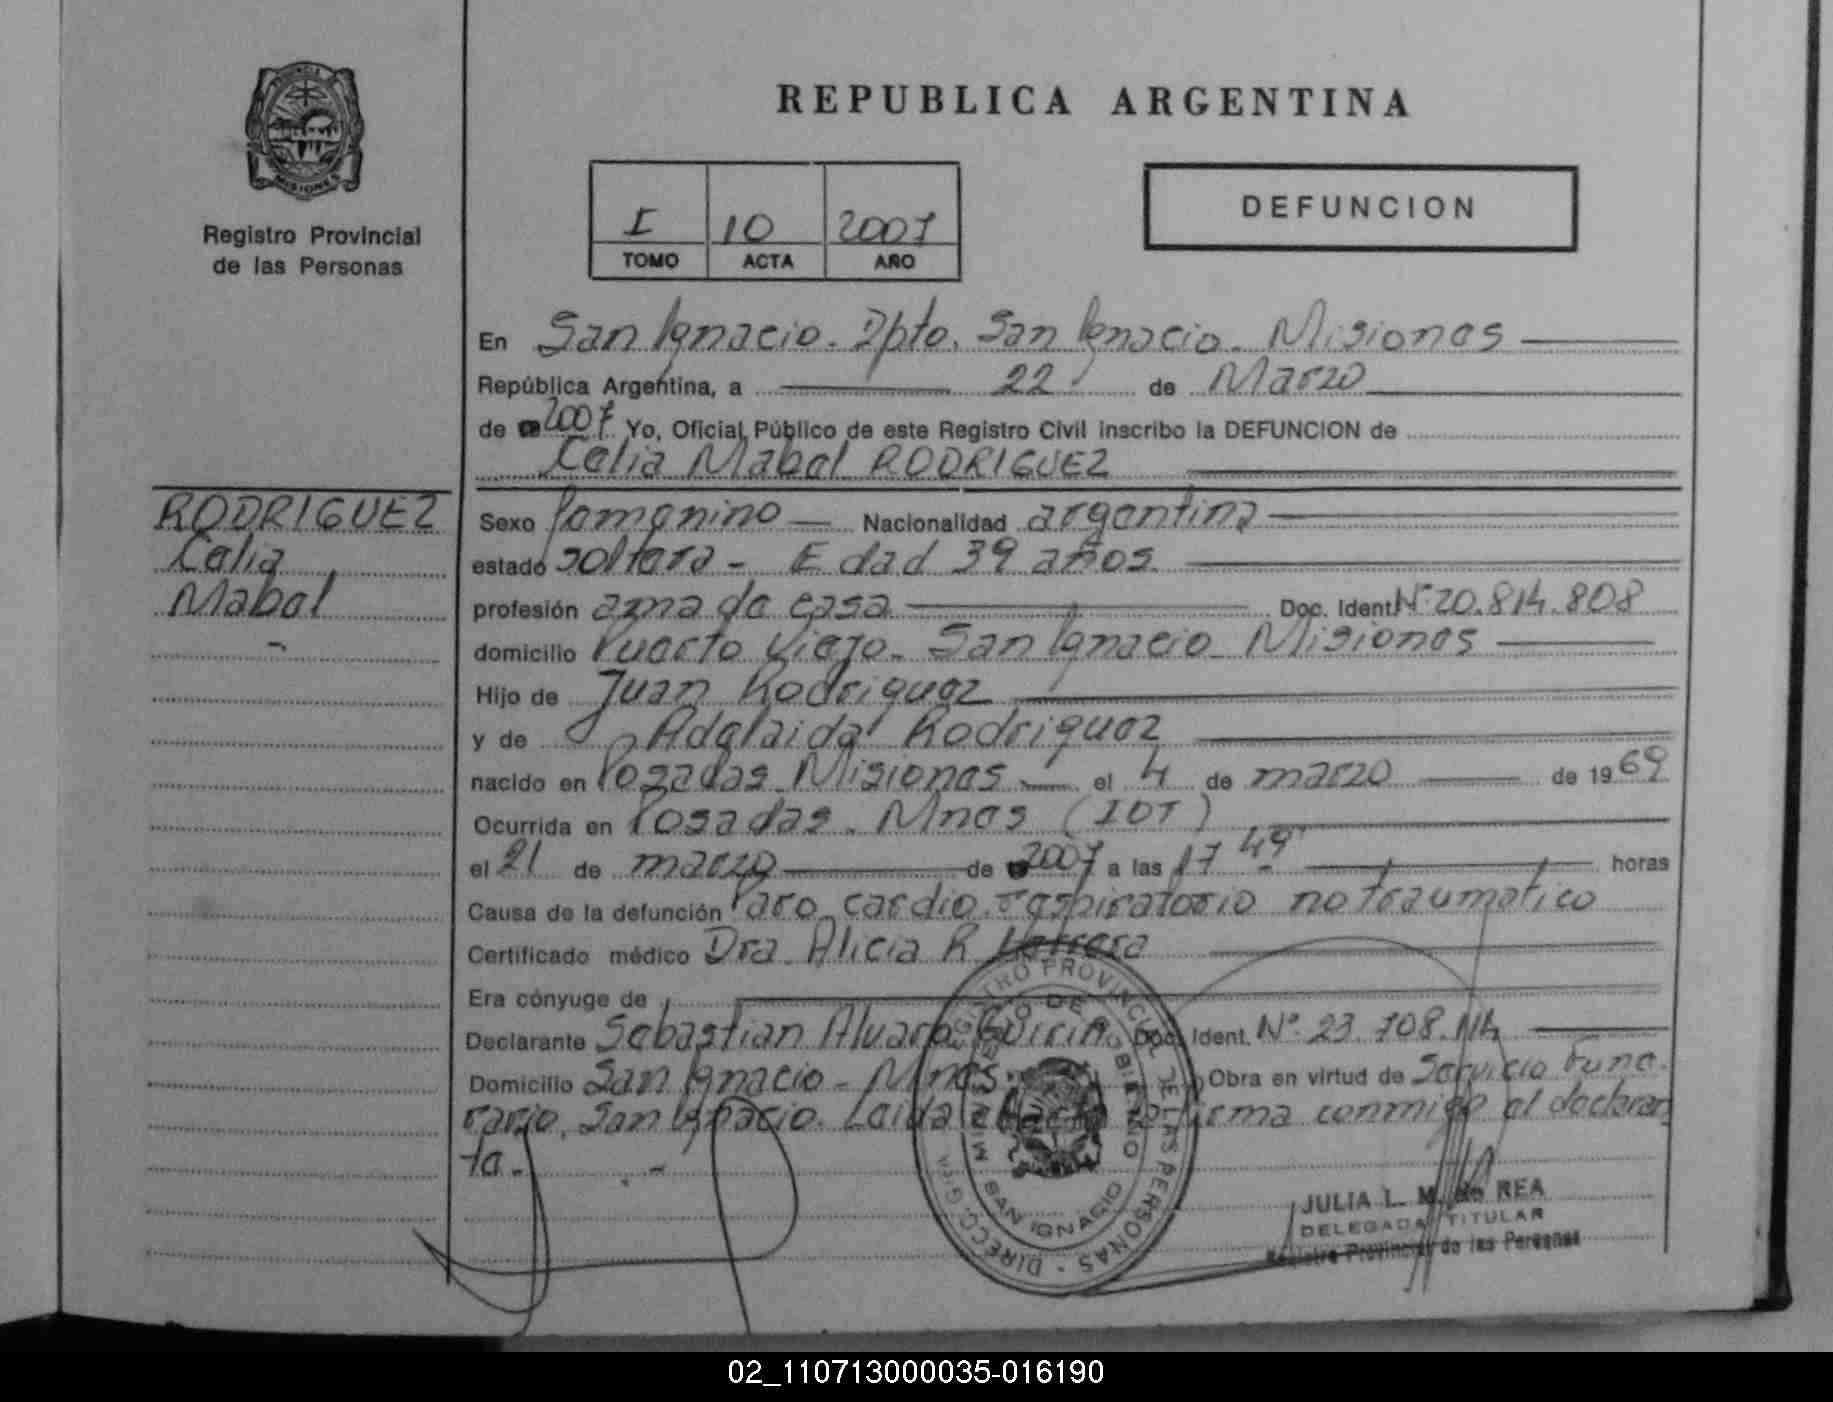 REPUBLICA ARGENTINA
PROVINCIA DE
MISIONES
Registro Provincial
de las Personas
I 10 2007
TOMO ACTA AÑO
DEFUNCION
En San Ignacio. Dpto. San Ignacio. Misiones
República Argentina, a 22 de Marzo
de 2007 Yo, Oficial Público de este Registro Civil inscribo la DEFUNCION de
Celia Mabel RODRIGUEZ
RODRIGUEZ
Celia
Mabel
Sexo femenino Nacionalidad argentina
estado soltera - Edad 39 años
profesión ama de casa Doc. Ident. Nº 20.814.808
domicilio Puerto Viejo. San Ignacio Misiones
Hijo de Juan Rodriguez
y de Adelaida Rodriguez
nacido en Posadas Misiones el 4 de marzo de 1969
Ocurrida en Posadas. Mnes (IOT)
el 21 de marzo de 2007 a las 17 49' horas
Causa de la defunción Paro cardio respiratorio no traumatico
Certificado médico Dra. Alicia R Herrera
Era cónyuge de
Declarante Sebastian Alvaro Doc. Ident. Nº 23.708.114
Domicilio San Ignacio - Mnes. Obra en virtud de Servicio Fune-
rario. San Ignacio. Leida el Acta firma conmigo el declaran
te.
DIRECC. GRAL. REGISTRO PROVINCIAL DE LAS PERSONAS
MINISTERIO DE GOBIERNO
SAN IGNACIO
JULIA L. M. de REA
DELEGADA TITULAR
Registro Provincial de las Personas
02_110713000035-016190